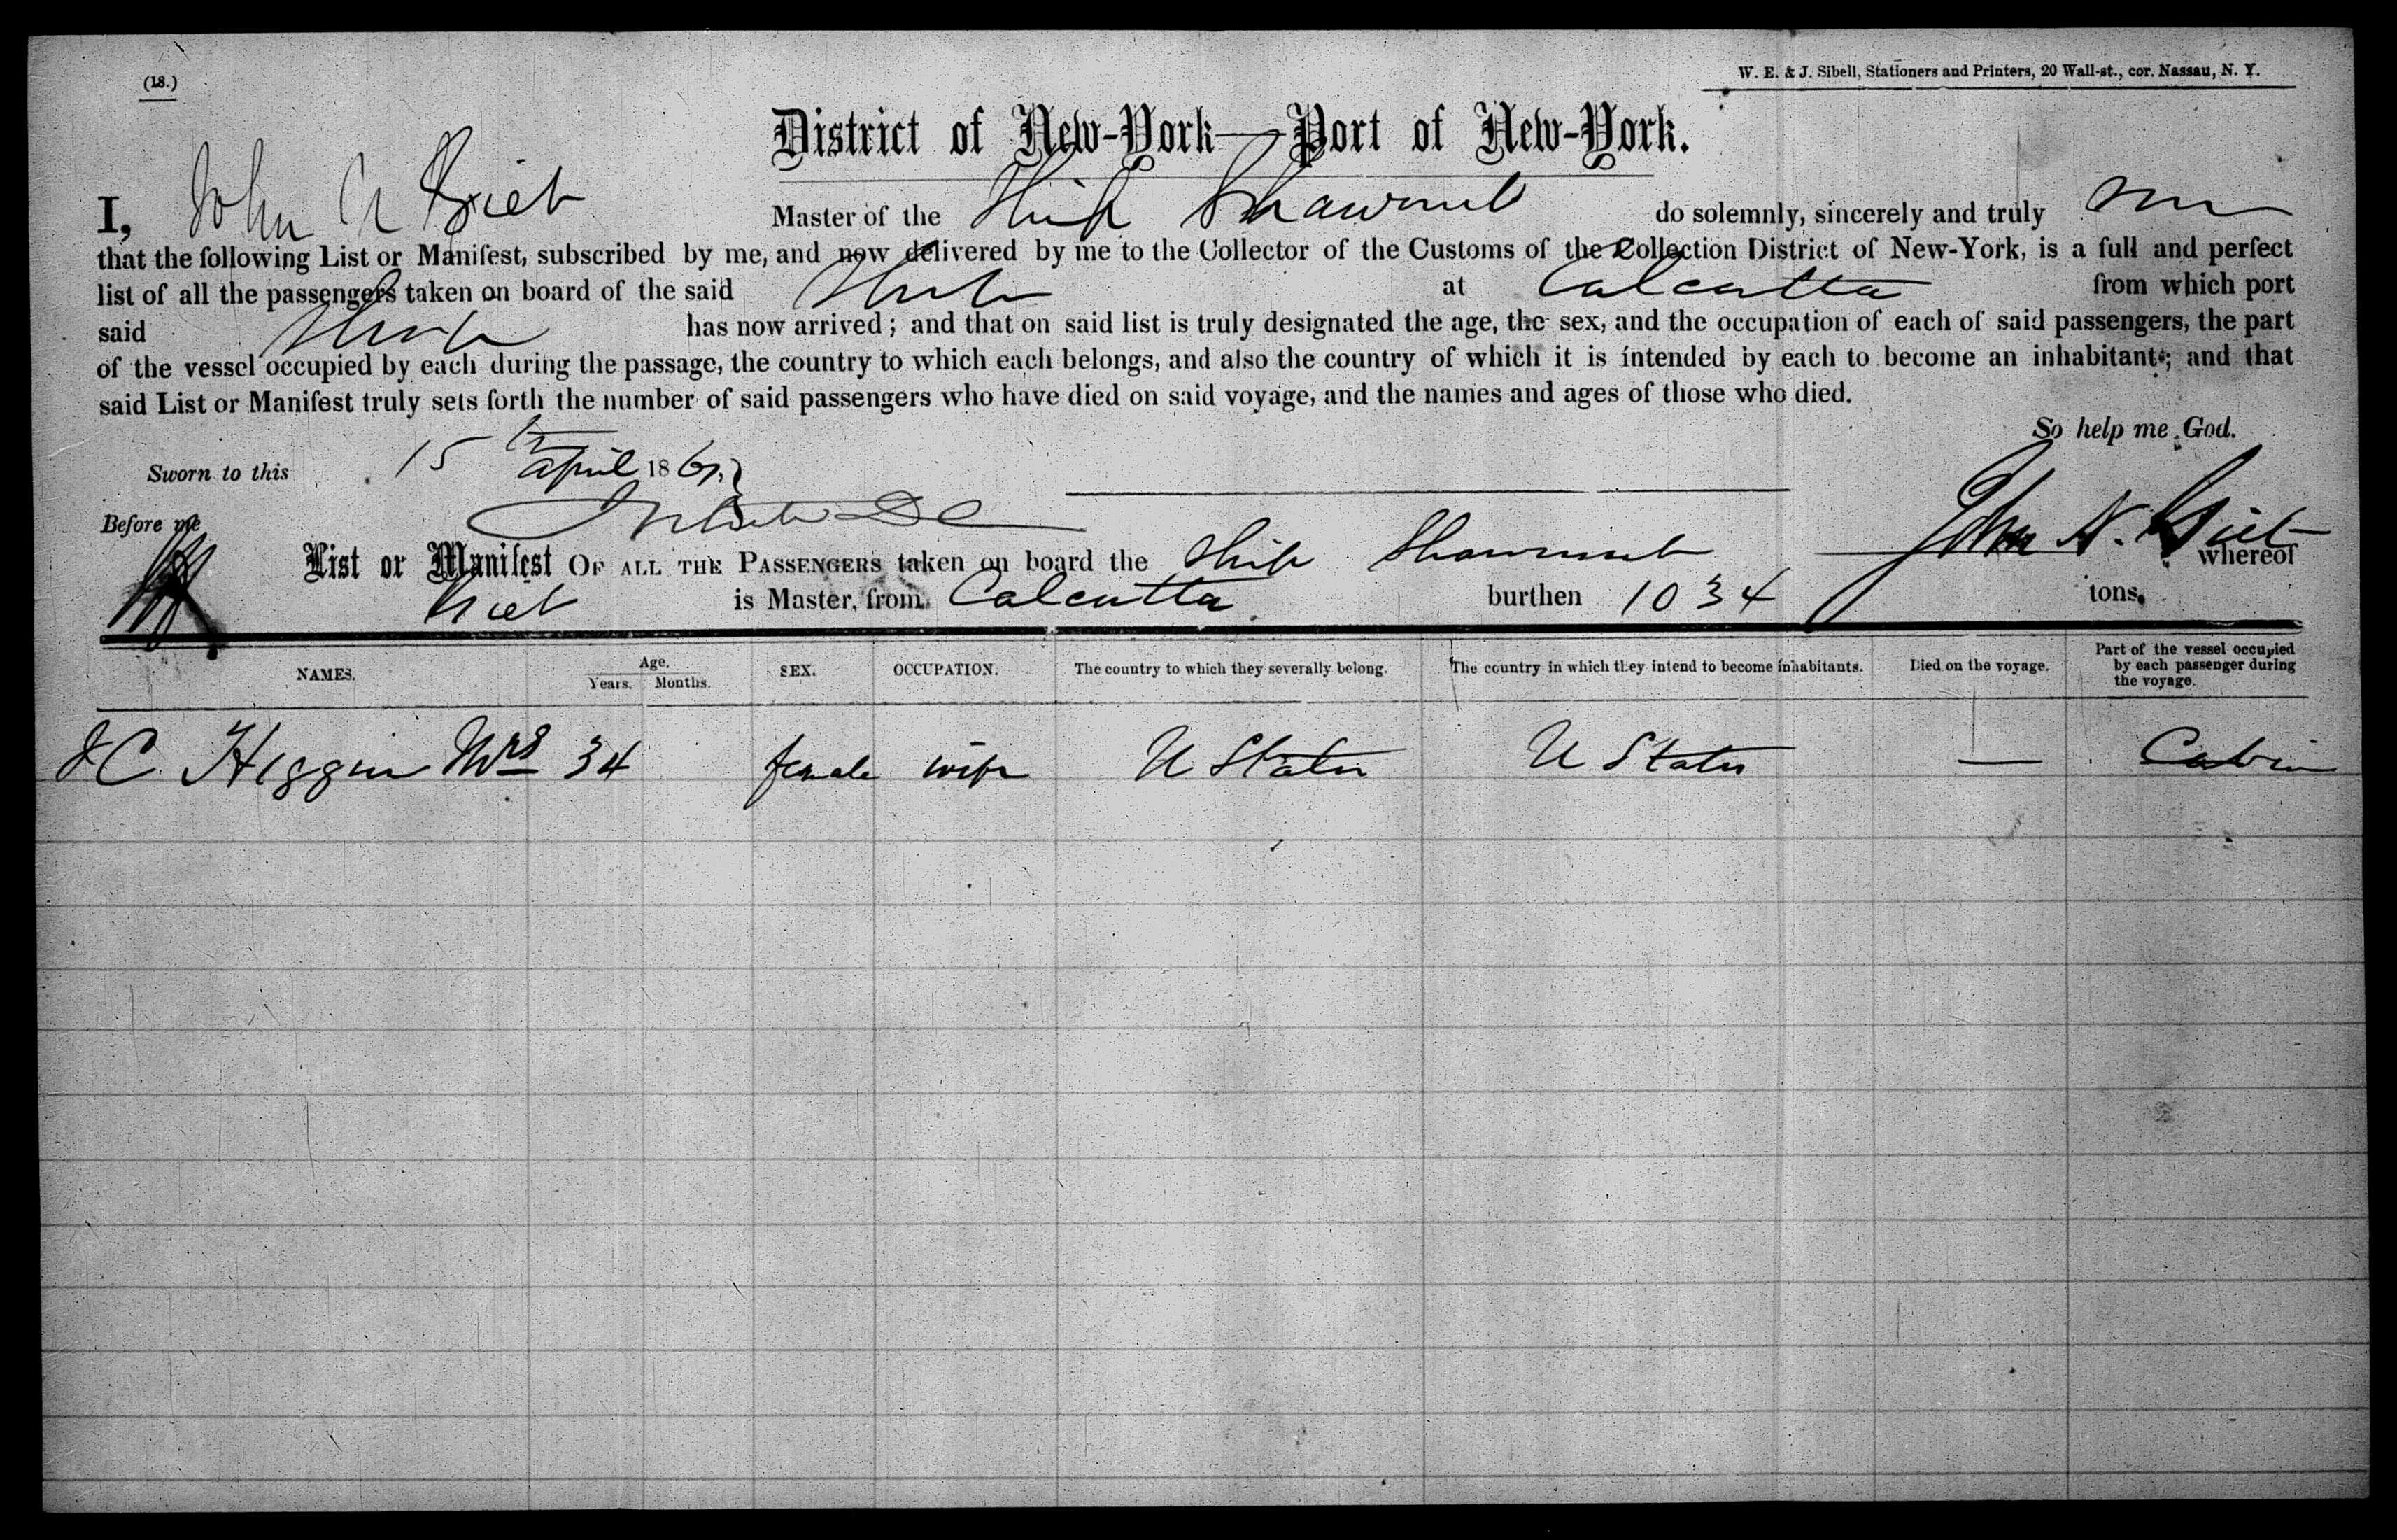 (18.)
W. E. & J. Sibell, Stationers and Printers, 20 Wall-st., cor. Nassau, N. Y.
District of New-York—Port of New-York.
I, John N Master of the Ship Shawmut do solemnly, sincerely and truly
that the following List or Manifest, subscribed by me, and now delivered by me to the Collector of the Customs of the Collection District of New-York, is a full and perfect
list of all the passengers taken on board of the said Ship at Calcutta from which port
said Ship has now arrived; and that on said list is truly designated the age, the sex, and the occupation of each of said passengers, the part
of the vessel occupied by each during the passage, the country to which each belongs, and also the country of which it is intended by each to become an inhabitant; and that
said List or Manifest truly sets forth the number of said passengers who have died on said voyage, and the names and ages of those who died.
So help me God.
Sworn to this 15th April 186
Before me
John N.
List or Manifest OF ALL THE PASSENGERS taken on board the Ship Shawmut whereof
is Master, from Calcutta burthen 1034 tons.
NAMES. Age. Years. Months. SEX. OCCUPATION. The country to which they severally belong. The country in which they intend to become inhabitants. Died on the voyage. Part of the vessel occupied by each passenger during the voyage.
C Higgins Mrs 34 female wife U States U States — Cabin